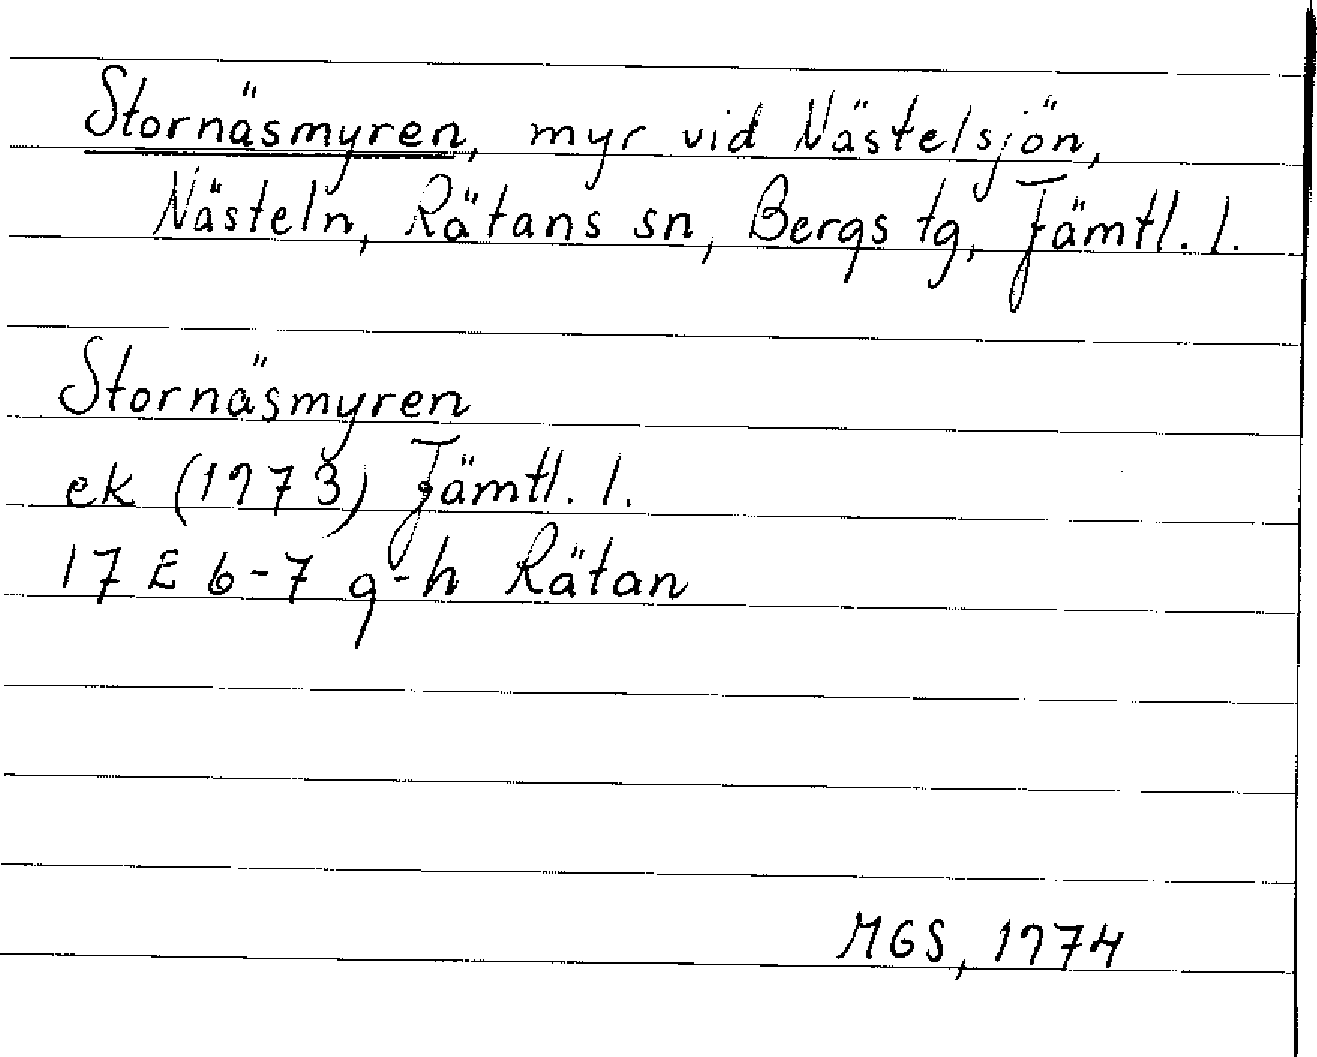 Stornäsmyren, myr vid Nästelsjön,
Nästeln, Rätans sn, Bergs tg, Jämtl. l.
Stornäsmyren
ek (1973) Jämtl. l.
17 E 6-7 g-h Rätan
MGS, 1974